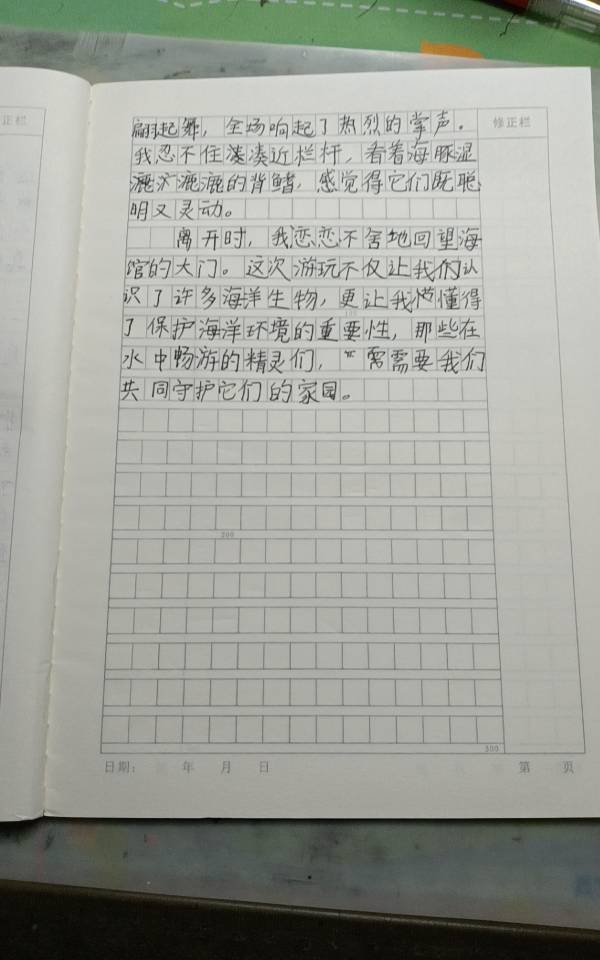 正栏
修正栏
翩起舞，全场响起了热烈的掌声。
我忍不住凑凑近栏杆，看着海豚湿
漉漉漉的背鳍，感觉得它们既聪
明又灵动。
离开时，我恋恋不舍地回望海
馆的大门。这次游玩不仅让我们认
识了许多海洋生物，更让我懂得
100
了保护海洋环境的重要性，那些在
水中畅游的精灵们，需要我们
共同守护它们的家园。
200
300
日期： 年 月 日 第 页